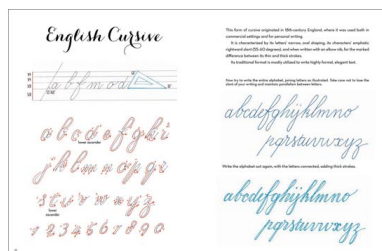 English Cursive
a b f m o d
a b c d e f g h i
lower ascender
j k l m n o p q r
s t u v w x y z
lower ascender
1 2 3 4 5 6 7 8 9 0
This form of cursive originated in 18th-century England, where it was used both in
commercial settings and for personal writing.
It is characterized by its letters' narrow, oval shaping, its characters' emphatic
rightward slant (55-60 degrees), and when written with an elbow nib, for the marked
difference between its thin and thick strokes.
Its traditional format is mostly utilized to write highly formal, elegant text.
Now try to write the entire alphabet, joining letters as illustrated. Take care not to lose the
slant of your writing and maintain parallelism between letters.
abcdefghijklmno
pqrstuvwxyz
Write the alphabet out again, with the letters connected, adding thick strokes.
abcdefghijklmno
pqrstuvwxyz